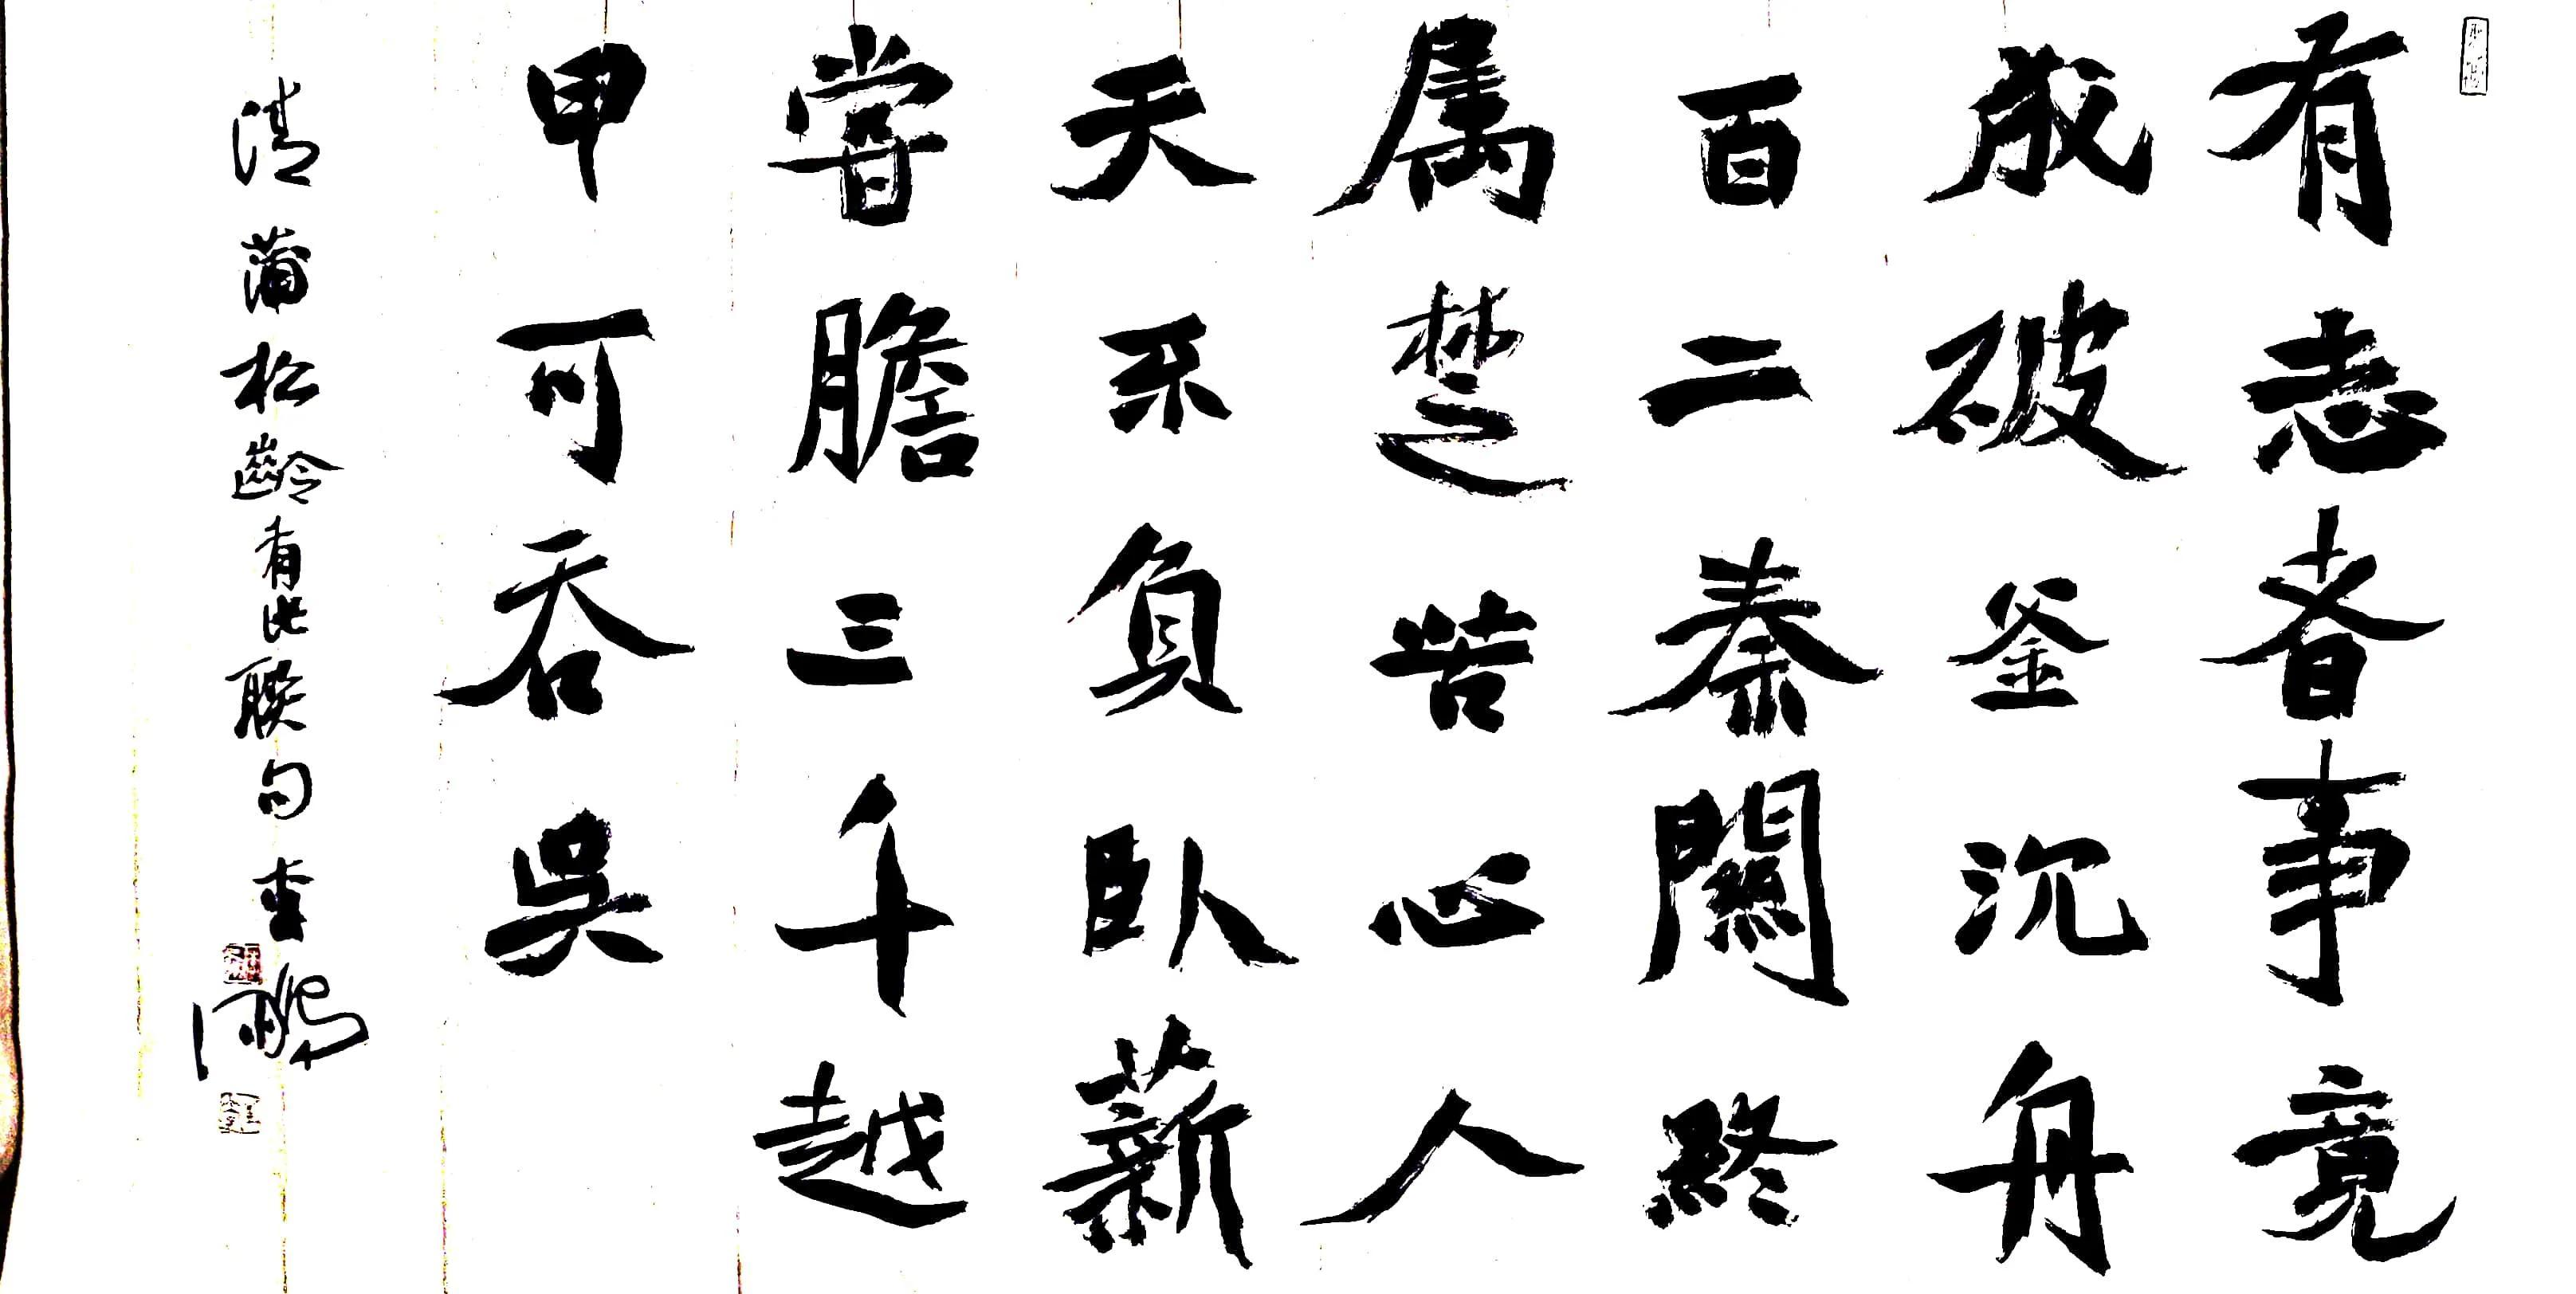 有志者事竟
成破釜沉舟
百二秦關終
属楚苦心人
天不負卧薪
嘗膽三千越
甲可吞吳
清蒲松齡有此聯句